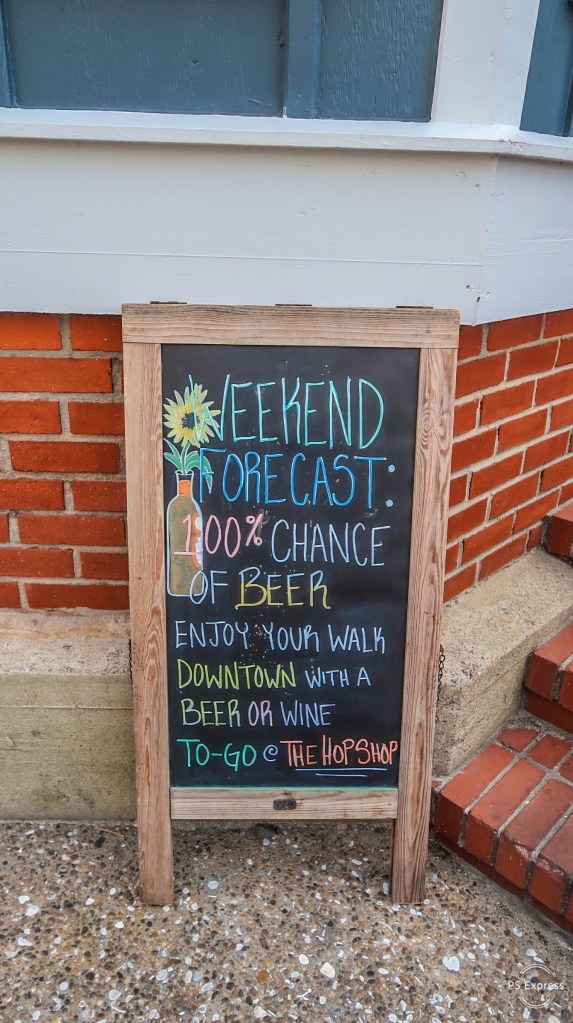 WEEKEND
FORECAST:
100% CHANCE
OF BEER
ENJOY YOUR WALK
DOWNTOWN WITH A
BEER OR WINE
TO-GO @ THE HOP SHOP
PS Express